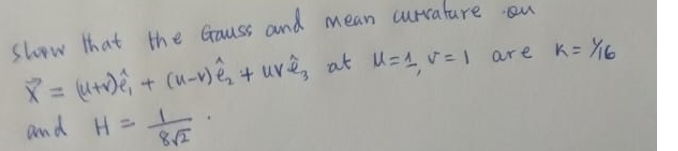 Show that the Gauss and mean curvature on
x⃗ = (u+v)ê₁ + (u-v)ê₂ + uvê₃ at u=1, v=1 are K= 1/16
and H = 1/8√2 .